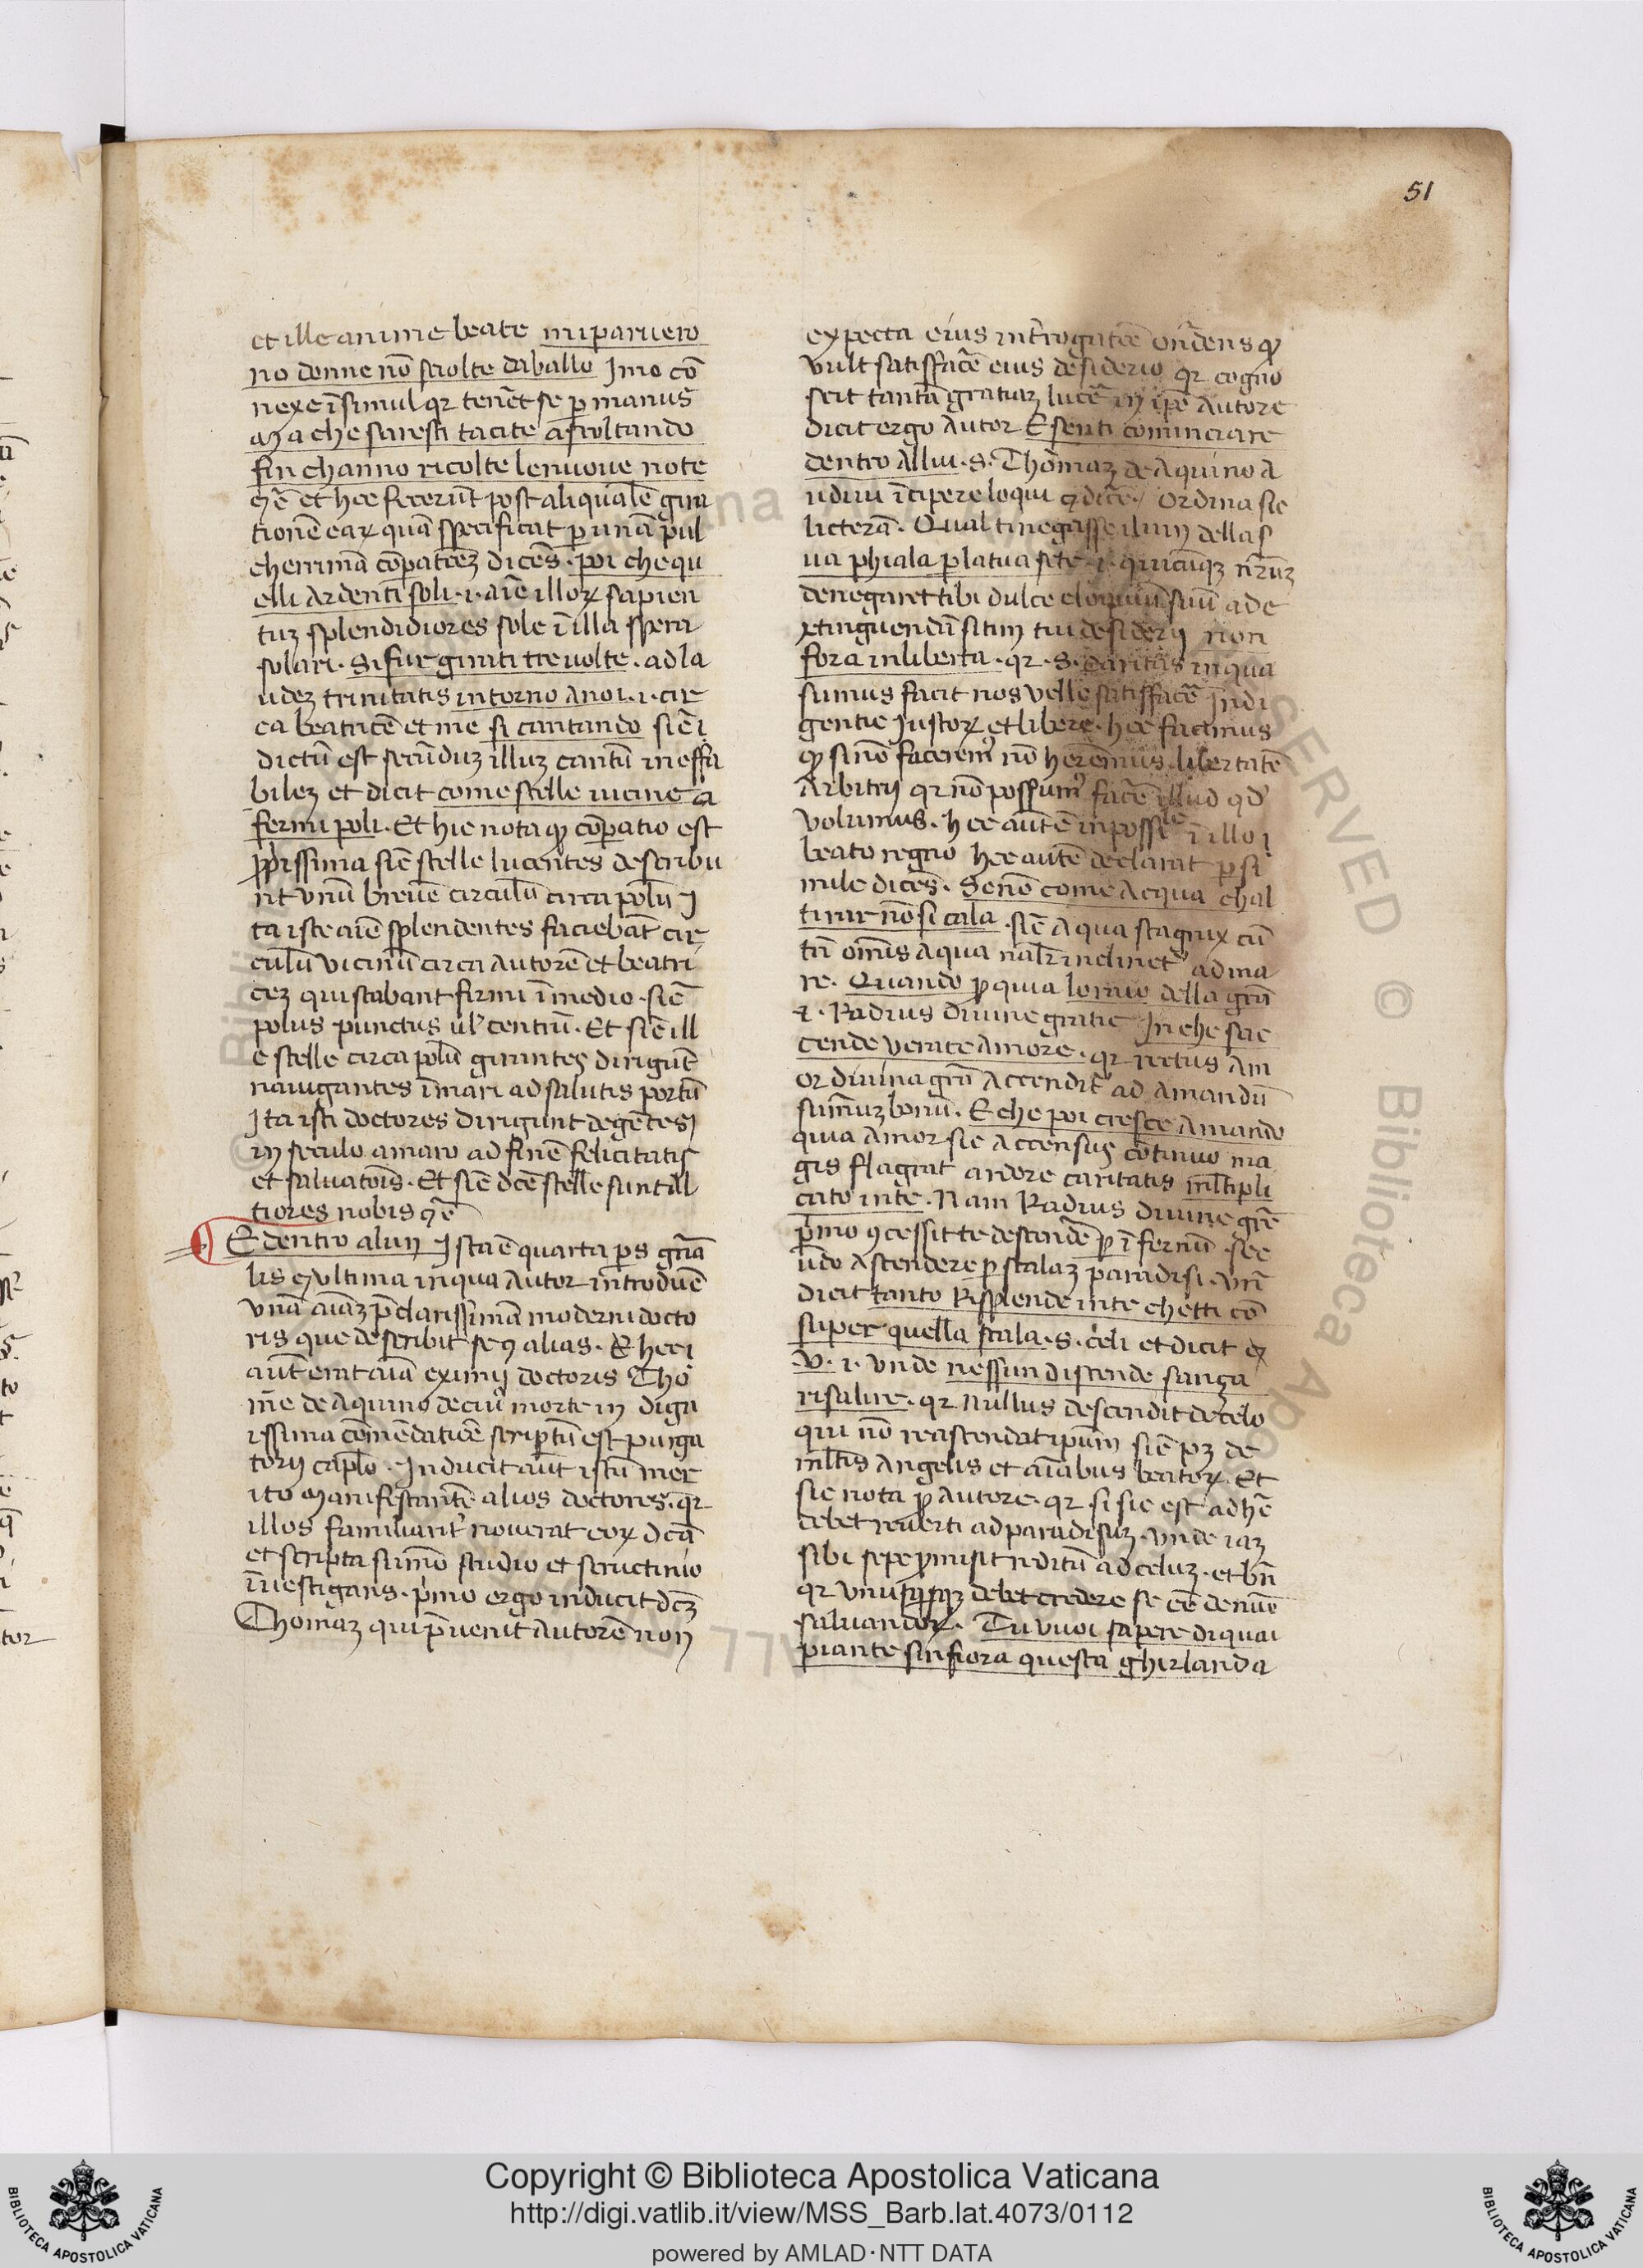 51
et ille anime beate mi paruero
no donne nō sciolte da ballo Imo cō
nexe īsimul qr tenēt se p manus
Ma che saresti tacite ascoltando
fin channo ricolte le nuoue note
⁊ē et hec fecerūt post aliqualē gira
tionē eaꝝ quā specificat p unā pul
cherrimā cōpatiōeꝫ dicēs · poi che qu
elli Ardenti soli · i · aīe illoꝝ sapien
tuꝫ splendidiores sole ī illa spera
solari · Si fur girati tre uolte · ad la
udeꝫ trinitatis intorno a noi · i · cir
ca beatricē et me si cantando sic̄
dictū est secūduꝫ illuꝫ cantū ineffa
bileꝫ et dicit come stelle uicine a
fermi poli · Et hic nota ꝙ cōpatio est
ꝓpissima sic̄ stelle lucentes describu
nt vnū breuē circulū circa polū I
ta iste aīe splendentes faciebāt cir
culū vicinū circa Autorē et beatri
ceꝫ qui stabant firmi ī medio · sic̄
polus punctus ul' centrū · Et sic̄ ill
e stelle circa polū girantes dirigūt
nauigantes ī mari ad salutis portū
Ita isti doctores dirigunt degētes
in seculo amaro ad finē felicitatis
et saluatōis · Et sic̄ dc̄e stelle sunt al
tiores nobis ⁊ē
E dentro alun Ista ē quarta ps gn̄a
lis ⁊ vltima in qua Autor introducē
vnā aīaꝫ p̄clarissimā moderni docto
ris que describit se ⁊ alias · E hec
aūt erat aīa eximij doctoris Tho
me de Aquino de cuiꝰ morte in digni
issima cōmēdatiōe scriptū est purga
torij caplo · Inducit aūt istū mer
ito Manifestantē alios doctores · qr
illos familiarit' nouerat eoꝝ dc̄a
et scripta sūmo studio et scructinio
īuestigans · p̄mo ergo inducit dc̄ꝫ
Thomaꝫ qui p̄uenit Autorē non
expecta eius intr̄ogatōe on̄dens ꝙ
vult satisfacē eius desiderio qr cogno
scit tantā gratiaꝫ lucē in ip̄e Autore
dicit ergo Autor E senti cominciare
dentro Allui · S · Thomaꝫ de Aquino A
udiui īcipere loqui ⁊ dicē / ordina sic
licterā · Qual ti negasse il uin della s
ua phiala p la tua sete · i · quicūqꝫ nr̄ūꝫ
denegaret tibi dulce eloquiū suū ad e
xtinguendū sitim tui desiderij non
fora in liberta · qr · S · caritas in qua
sumus facit nos velle satisfacē Indi
gentie Iustoꝝ et libere · hec facimus
ꝙ si nō facerem' nō herēmus libertatē
Arbitrij qr nō possum' facē illud qd'
volumus · hec autē īpossle ī illo
beato regno hec autē declarat p si
mile dicēs · Se nō come Acqua chal
mar nō si cala · sic̄ Aqua stagnix cū
tn̄ om̄is aqua nal'r inclinet' ad ma
re · Quando ꝓ quia lo raio della grā
i · Radius diuine gratie In che sac
cende verace Amore · qr rectus Am
or diuina grā Accendit' ad Amandū
sum̄uꝫ bonū · E che poi cresce Amando
quia Amor sic Accensus cōtinuo ma
gis flagrat ardore caritatis mltipli
cato in te · Nam Radius diuine grē
p̄mo ꝯcessit te descendē ꝓ īfernū · sec
ūdo Ascendere p scalaꝫ paradisi · vn̄
dicit tanto Risplende in te chetti cō
super quella scala · S · celi et dicit ex
V · i · vnde nessun discende sanza
risalire · qr nullus descendit de celo
qui nō reascendat ipsum sic̄ pꝫ de
mltis Angelis et aīabus beatoꝝ · Et
sic nota ꝓ Autore · qr si sic est ad hē
debet reuerti ad paradisuꝫ · vnde iaꝫ
sibi sepe ꝓmisit reditū ad celuꝫ · et bn̄
qr vnusqsqꝫ debet credere se eē de nūe
saluandoꝝ · Tu vuoi sapere di quai
piante sinfiora questa ghirlanda
Copyright © Biblioteca Apostolica Vaticana
http://digi.vatlib.it/view/MSS_Barb.lat.4073/0112
powered by AMLAD·NTT DATA
BIBLIOTECA APOSTOLICA VATICANA
BIBLIOTECA APOSTOLICA VATICANA